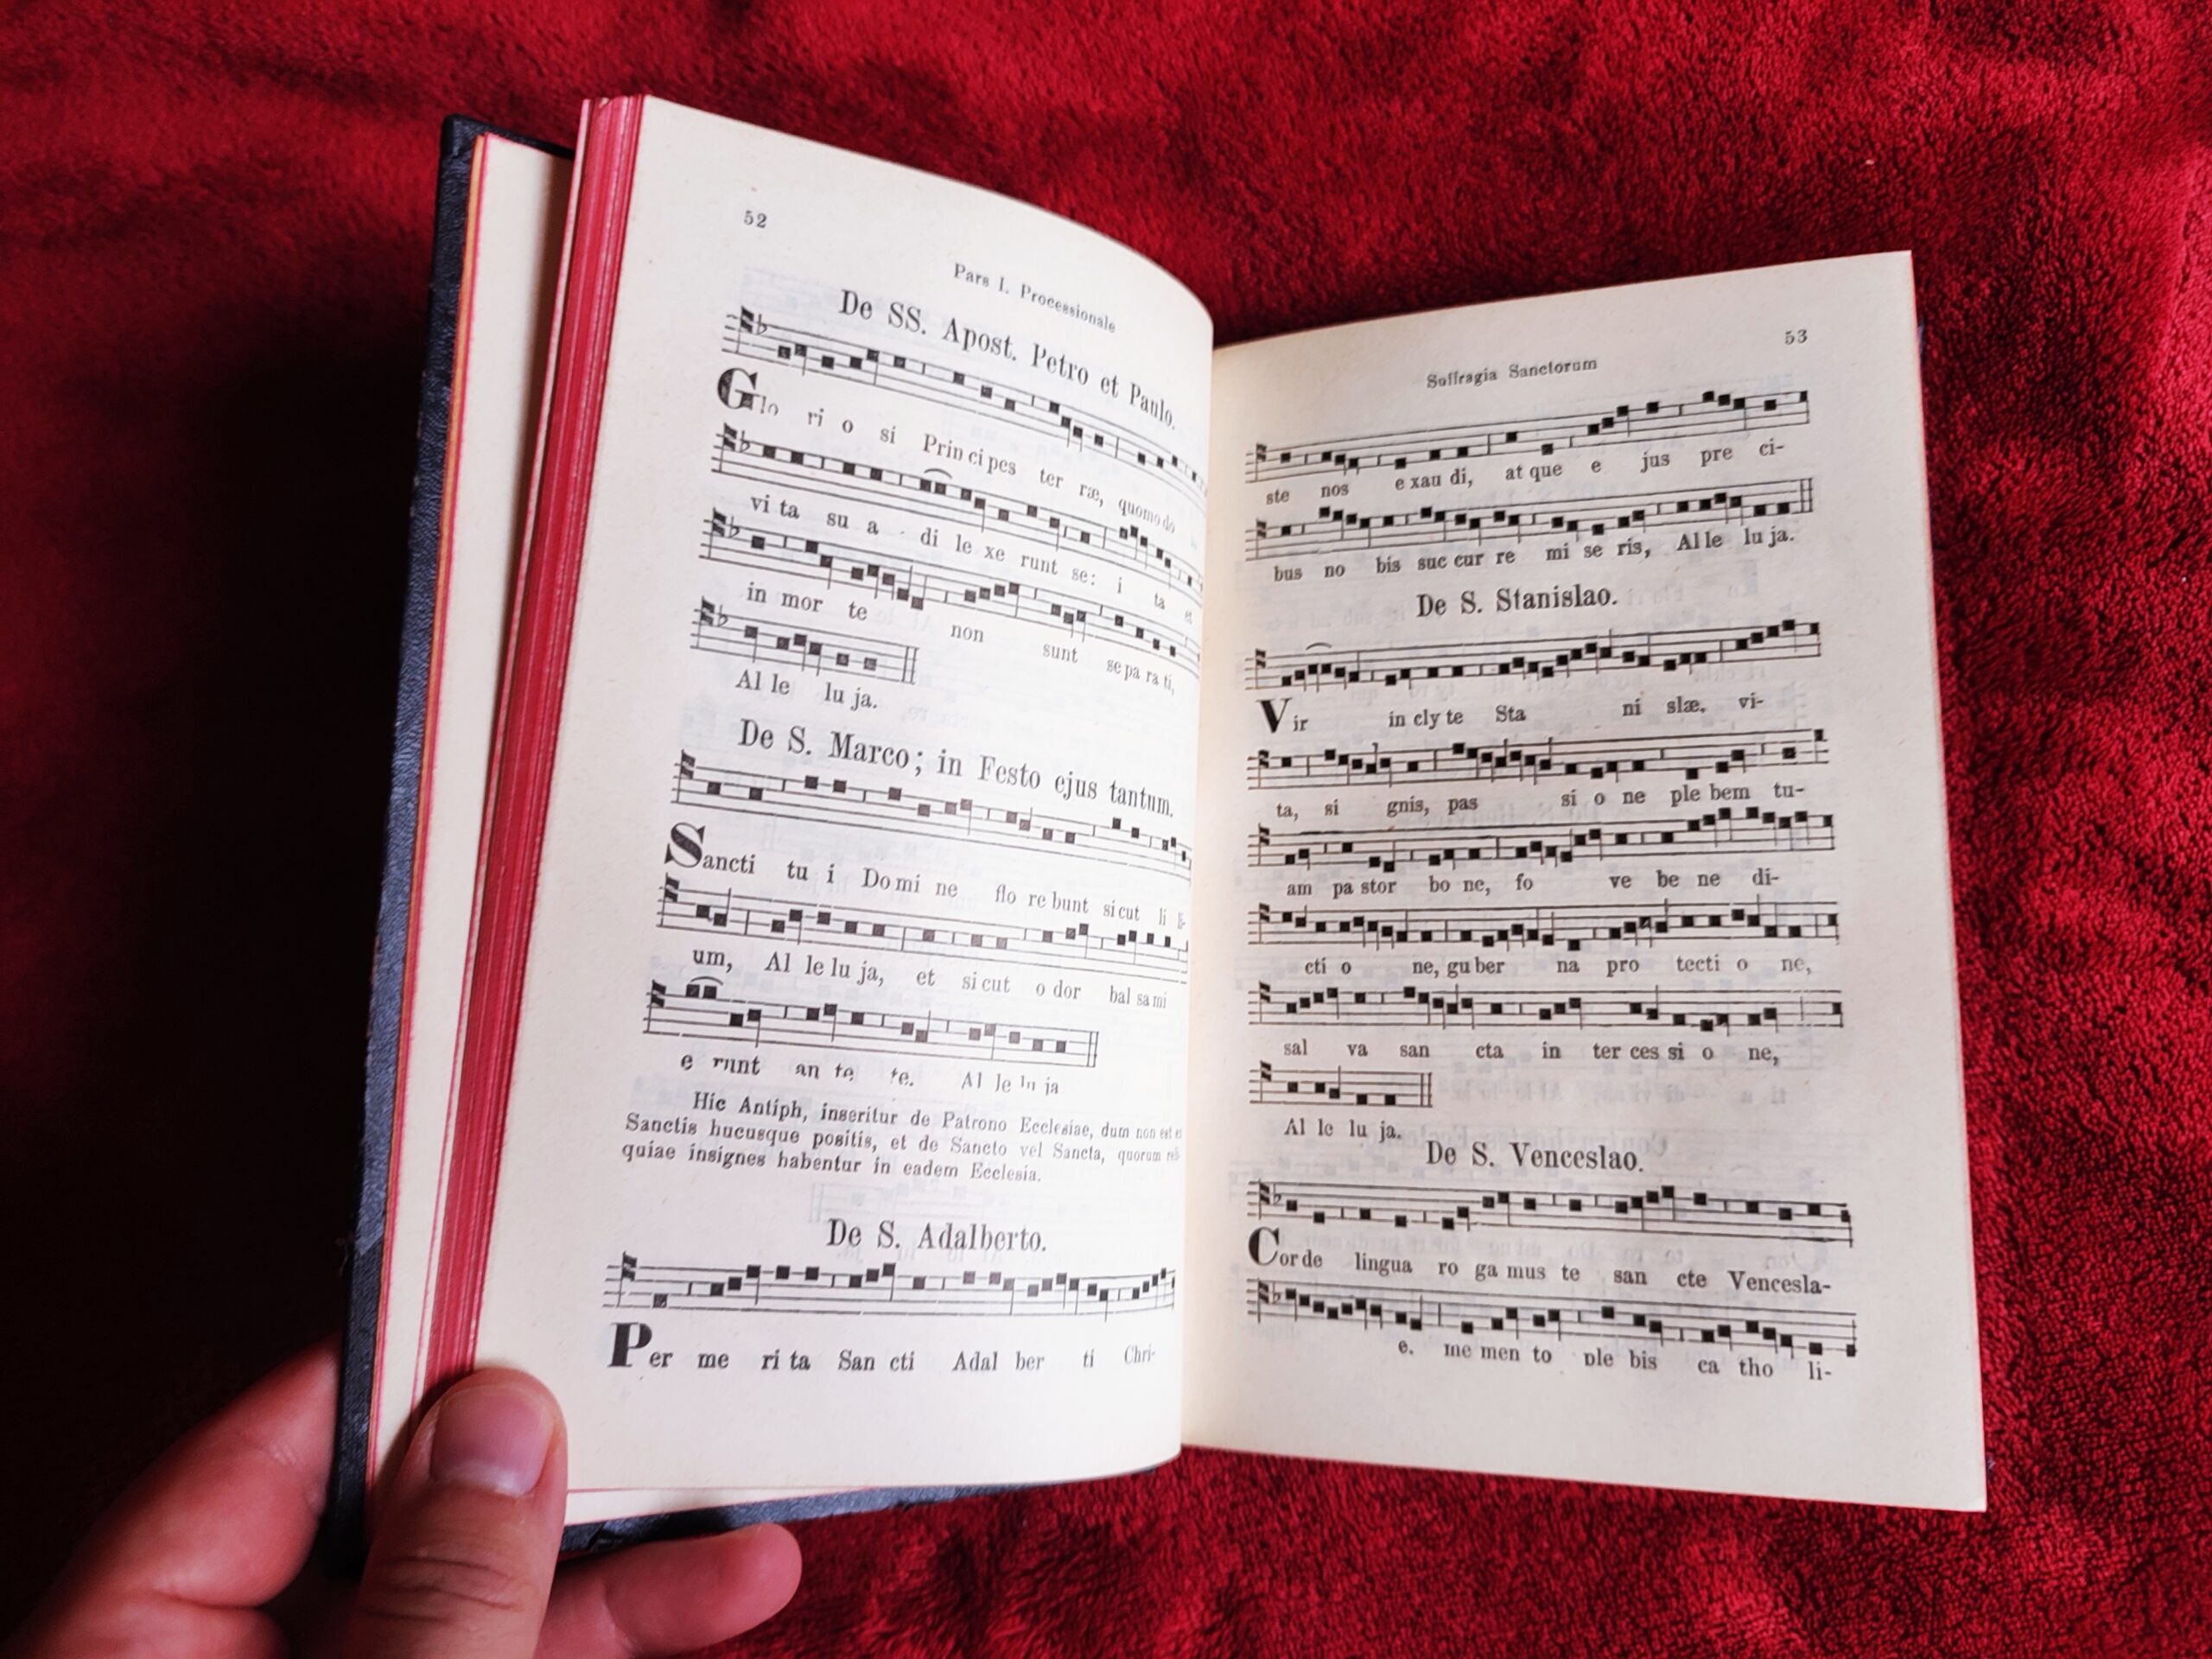 52
Pars I. Processionale
De SS. Apost. Petro et Paulo.
Glo ri o si Prin ci pes ter ræ, quomodo
vi ta su a di le xe runt se: i ta et
in mor te non sunt se pa ra ti,
Al le lu ja.
De S. Marco; in Festo ejus tantum.
Sancti tu i Do mi ne flo re bunt sicut li li-
um, Al le lu ja, et si cut o dor bal sa mi
e runt an te te. Al le lu ja
Hic Antiph, inseritur de Patrono Ecclesiae, dum non est
Sanctis hucusque positis, et de Sancto vel Sancta, quorum reli-
quiae insignes habentur in eadem Ecclesia.
De S. Adalberto.
Per me ri ta San cti Adal ber ti Chri-
53
Suffragia Sanctorum
ste nos e xau di, at que e jus pre ci-
bus no bis suc cur re mi se ris, Al le lu ja.
De S. Stanislao.
Vir in cly te Sta ni slæ. vi-
ta, si gnis, pas si o ne ple bem tu-
am pa stor bo ne, fo ve be ne di-
cti o ne, gu ber na pro tecti o ne,
sal va san cta in ter ces si o ne,
Al le lu ja.
De S. Venceslao.
Cor de lingua ro ga mus te san cte Vencesla-
e. me men to ple bis ca tho li-